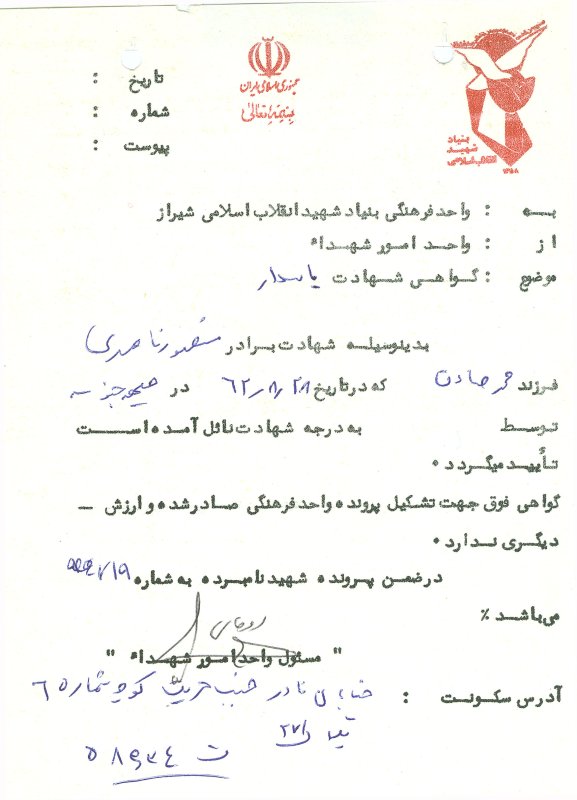 جمهوری اسلامی ایران
بسمه تعالی
بنیاد
شهید
انقلاب اسلامی
۱۳۵۸
تاریخ :
شماره :
پیوست :
به : واحد فرهنگی بنیاد شهید انقلاب اسلامی شیراز
از : واحد امور شهداء
موضوع : گواهی شهادت پاسدار
بدینوسیله شهادت برادر منصور ناصری
فرزند محمد صادق که در تاریخ ۶۲/۸/۲۸ در
توسط به درجه شهادت نائل آمده است
تأیید میگردد .
گواهی فوق جهت تشکیل پرونده واحد فرهنگی صادر شده و ارزش —
دیگری ندارد .
در ضمن پرونده شهید نامبرده به شماره
میباشد ٪
" مسئول واحد امور شهداء "
آدرس سکونت : خیابان نادر جنب کوچه شماره ۶
ت ۵۸۹۳۴